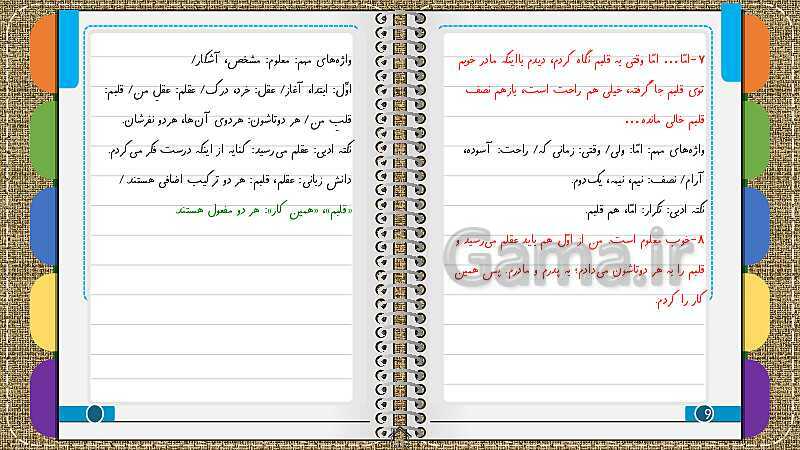 ۷-امّا... امّا وقتی به قلبم نگاه کردم، دیدم بااینکه مادر خوبم
توی قلبم جا گرفته، خیلی هم راحت است، بازهم نصف
قلبم خالی مانده...
واژه‌های مهم: امّا: ولی/ وقتی: زمانی که/ راحت: آسوده،
آرام/ نصف: نیم، نیمه، یک‌دوم.
نکته ادبی: تکرار: امّا، هم قلبم.
۸-خوب معلوم است. من از اوّل هم باید عقلم می‌رسید و
قلبم را به هر دوتاشون می‌دادم؛ به پدرم و مادرم. پس همین
کار را کردم.
Gama.ir
9
واژه‌های مهم: معلوم: مشخص، آشکار/
اوّل: ابتدا، آغاز/ عقل: خرد، درک/ عقلم: عقلِ من/ قلبم:
قلبِ من/ هر دوتاشون: هردوی آن‌ها، هردو نفرشان.
نکته ادبی: عقلم می‌رسید: کنایه از اینکه درست فکر می‌کردم.
دانش زبانی: عقلم، قلبم: هر دو ترکیب اضافی هستند./
«قلبم»، «همین کار»: هر دو مفعول هستند.